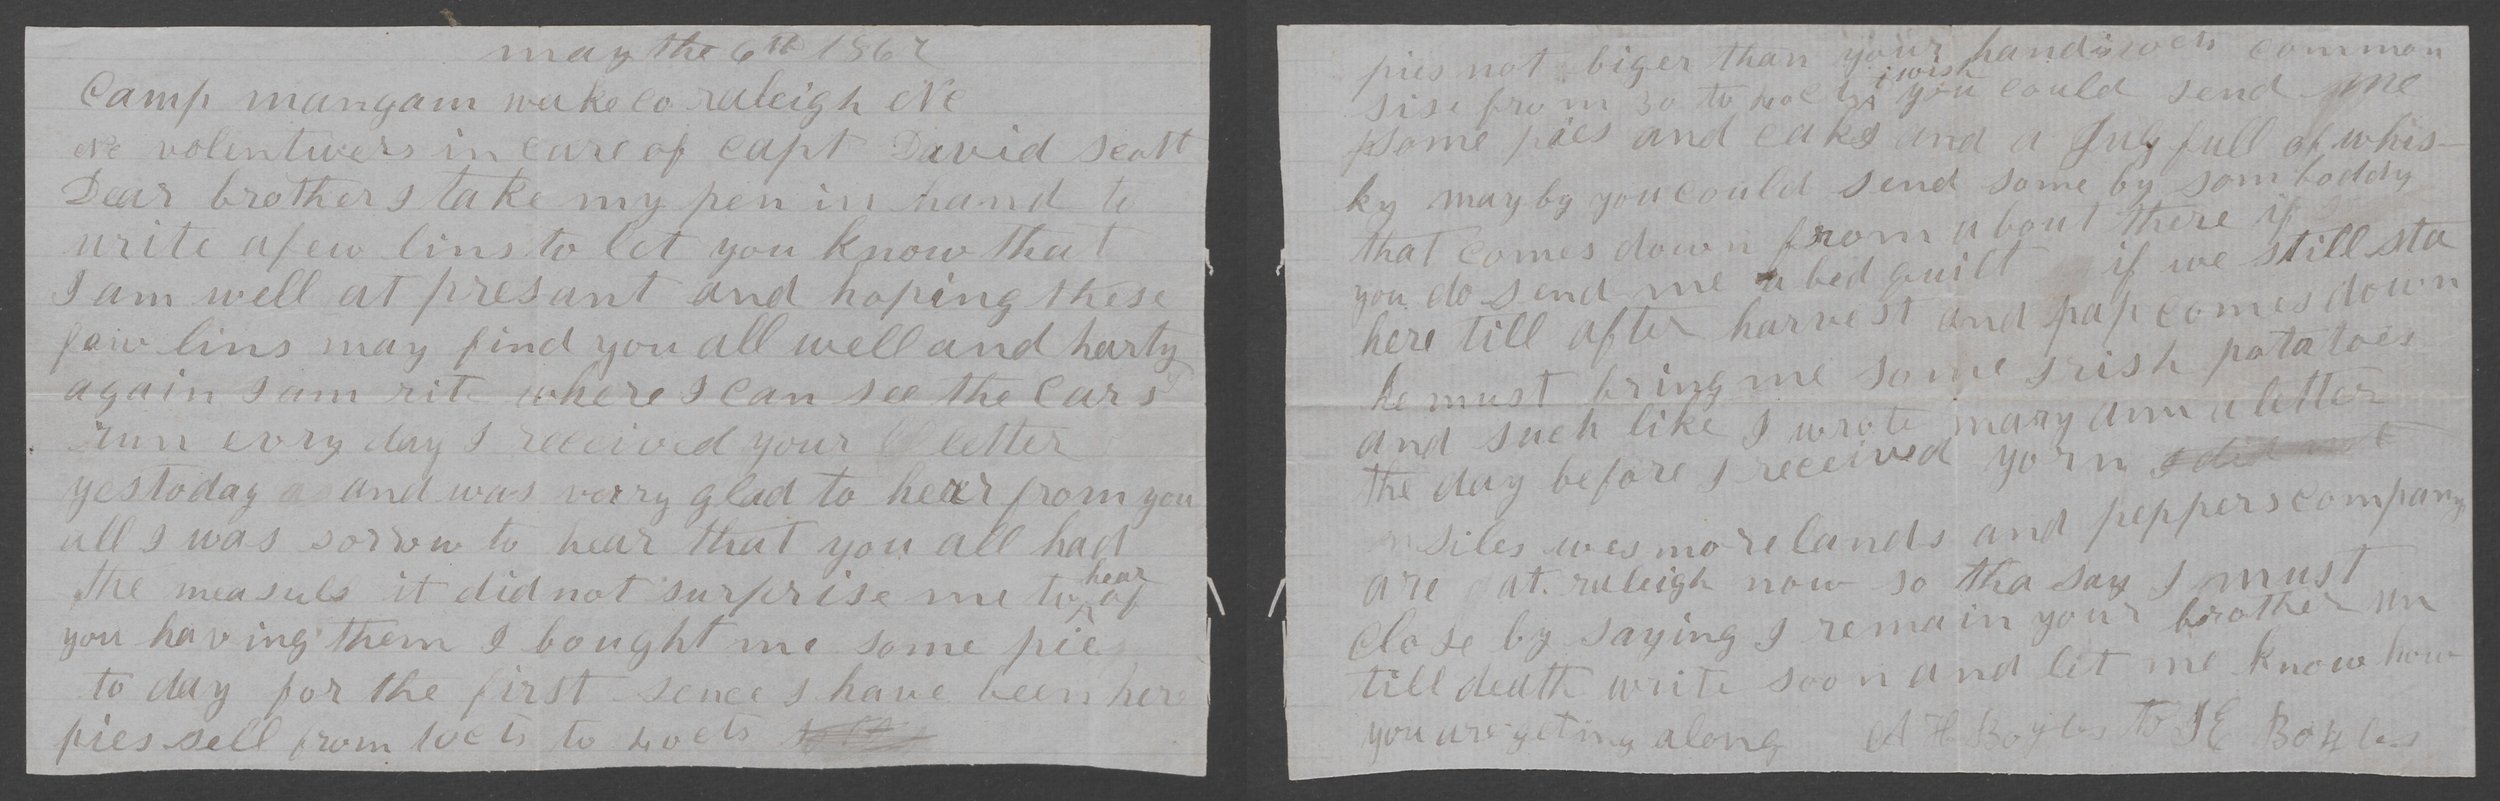 may the 6th 1862
Camp mangam wake co raleigh NC
NC volentuers in care of capt David Scott
Dear brother I take my pen in hand to
write a few lins to let you know that
I am well at presant and hoping these
few lins may find you all well and harty
again I am rite where I can see the cars
run evry day I received your letter
yestoday and was verry glad to hear from you
all I was sorrow to hear that you all had
the measuls it did not surprise me to hear of
you having them I bought me some pies
to day for the first sence I have been here
pies sell from 10cts to 40cts
pies not biger than your hand is 10cts common
sise from 30 to 40cts i wish you could send me
some pies and caks and a Jug full of whis-
ky mayby you could send some by somboddy
that comes down from about there if
you do send me a bed quilt if we still sta
here till after harvest and pap comes down
he must bring me some Irish potatoes
and such like I wrote mary ann a letter
the day before I received yorn I did not
siles wesmorelands and peppers company
are at raleigh now so tha say I must
close by saying I remain your brother un
till death write soon and let me know how
you are geting along A H Boyles to J E Boyles